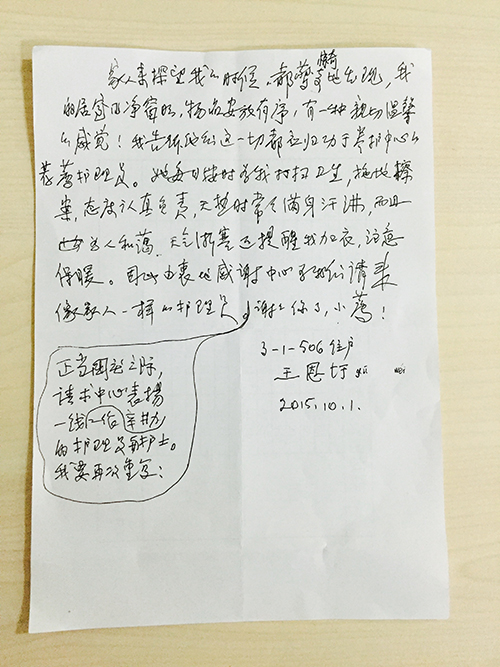 家人来探望我的时候，都惊奇地发现，我
的居室明净窗明，物品安放有序，有一种亲切温馨
的感觉！我告诉他们这一切都应归功于养护中心的
蒋莺护理员。她每日按时为我打扫卫生，拖地擦
桌，态度认真负责，天热时常令满身汗沸，而且
为人和蔼。天气渐寒还提醒我加衣，注意
保暖。因此由衷地感谢中心为我们请来
像家人一样的护理员。谢谢你了，小莺！
3-1-506住户
王恩
2015.10.1.
正当国庆之际，
请求中心表扬
一线工作辛劳
的护理员和护士。
我要再次重复：